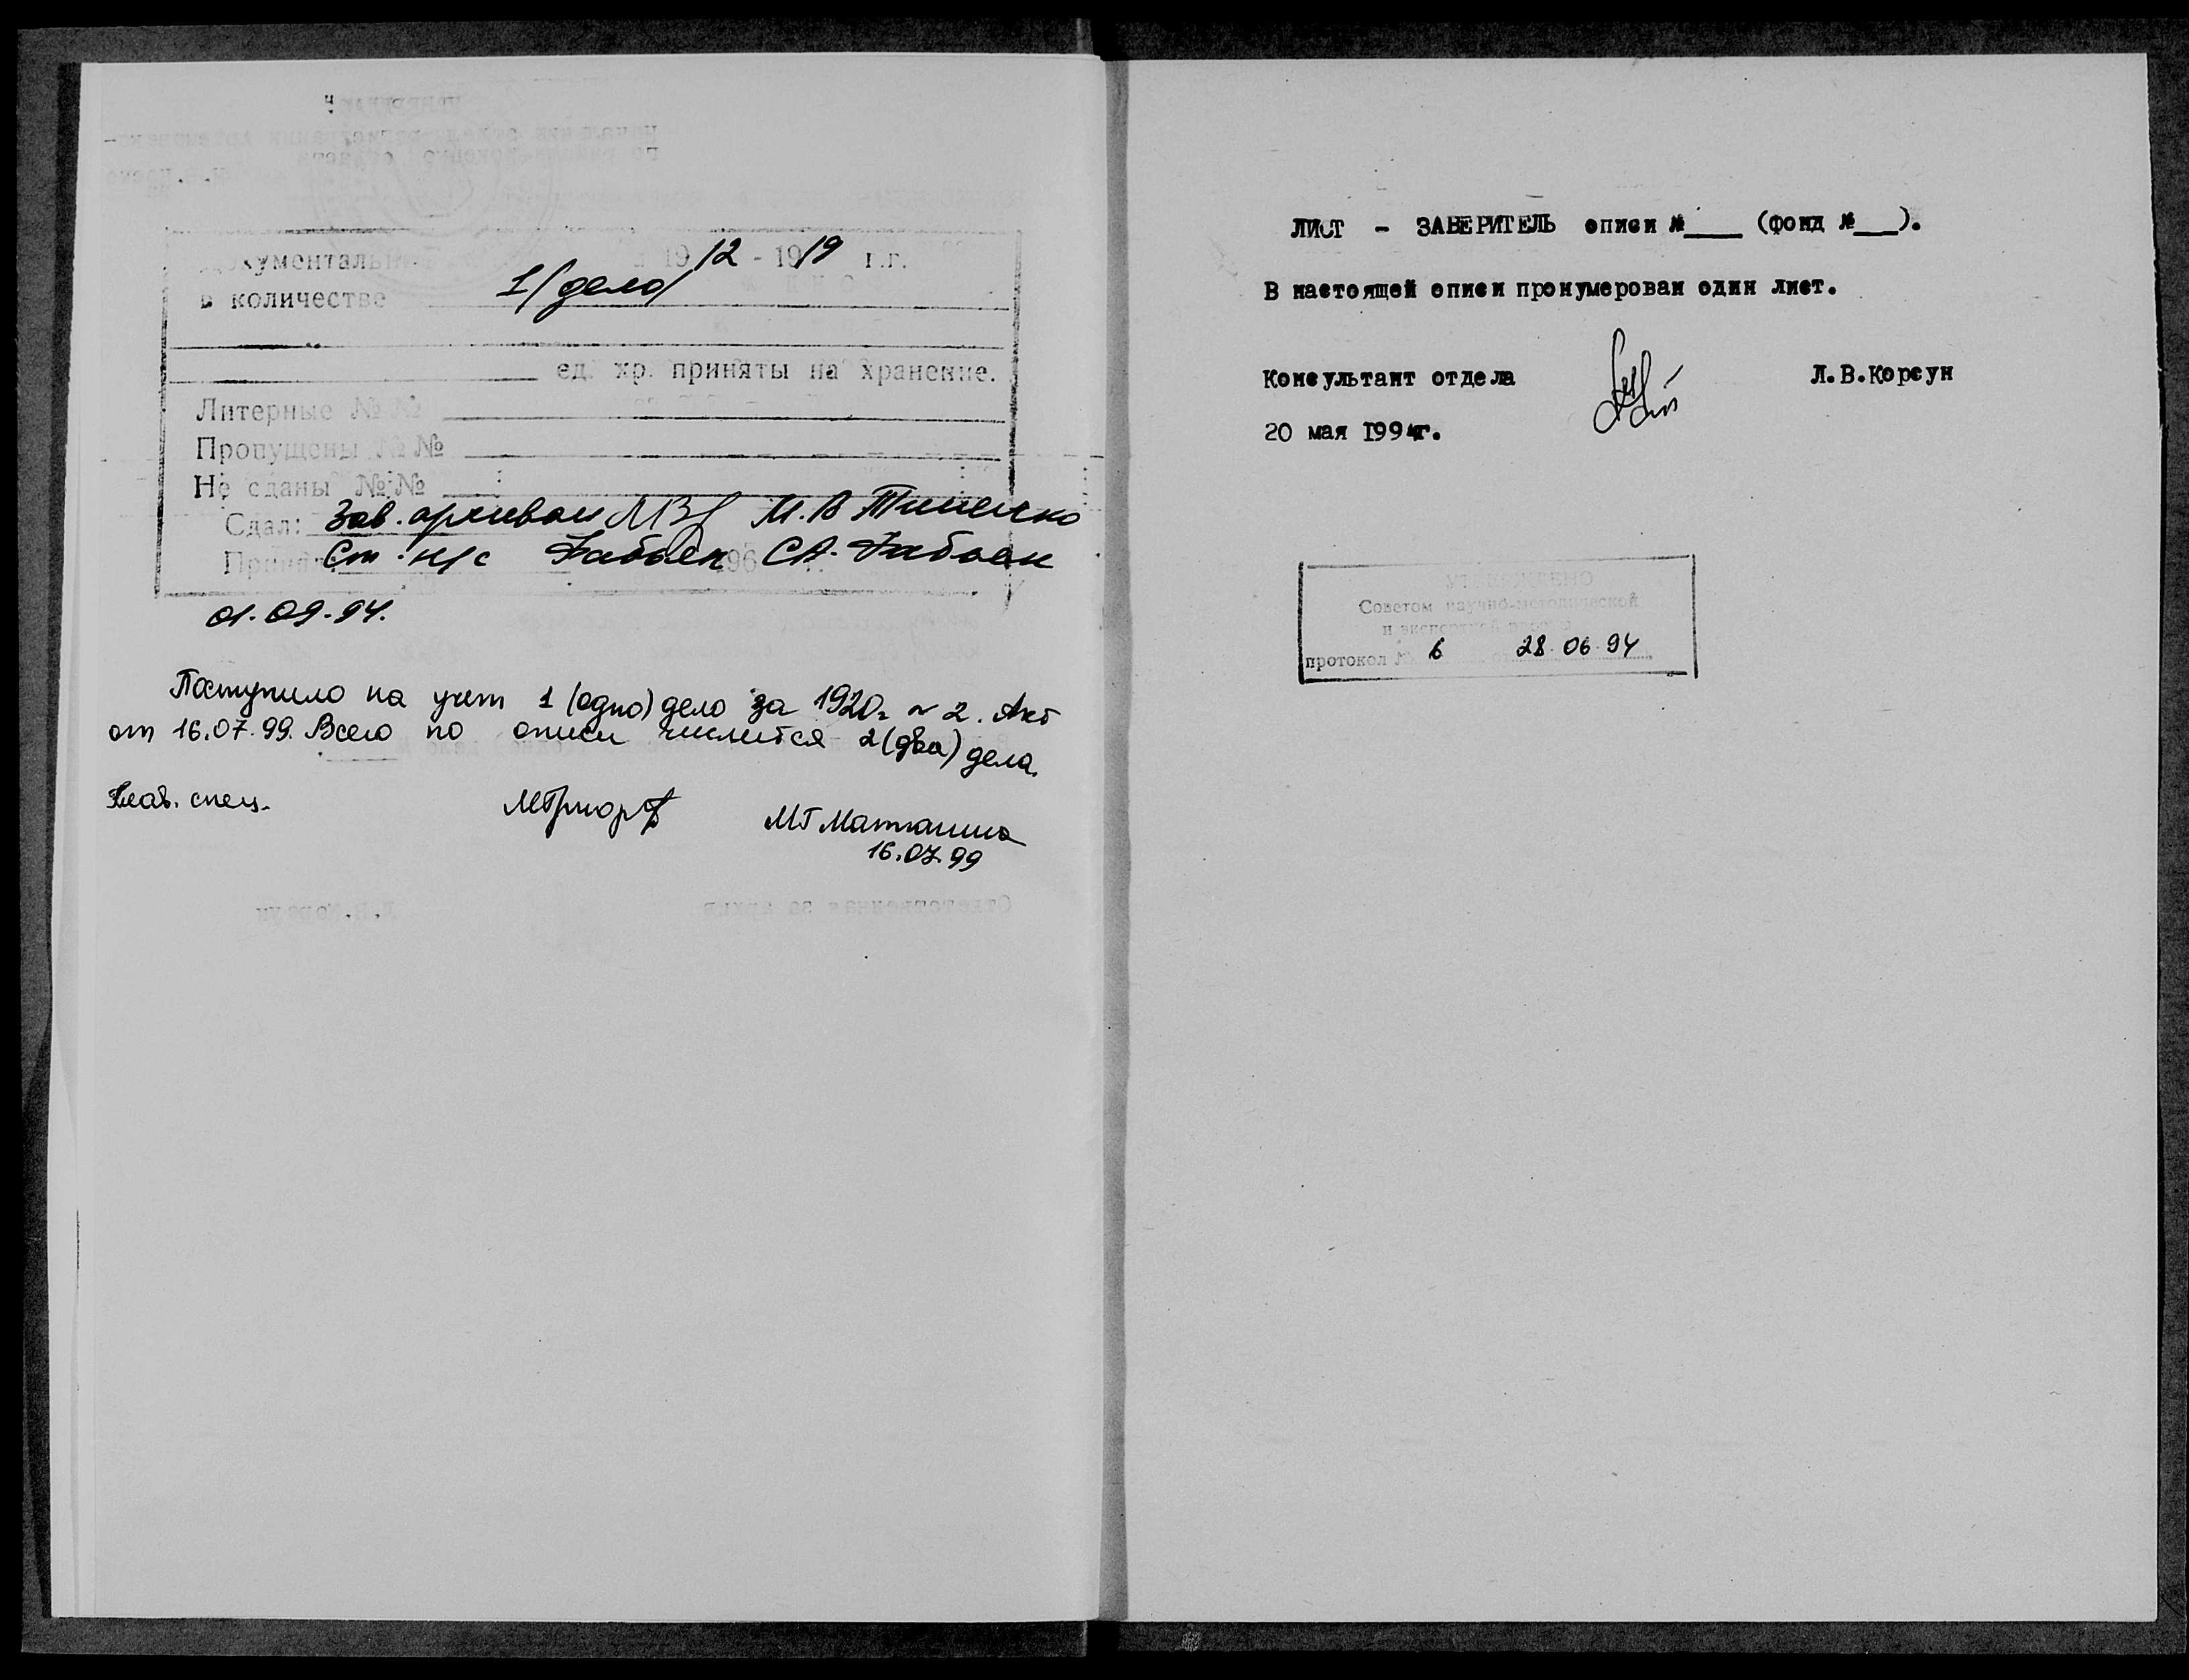 1912 - 1919 г.г.
в количестве 1/дело/
ед. хр. приняты на хранение.
Литерные №№
Пропущены №№
Не сданы №№
Сдал: Зав. архивом М.В. Тименко
Ст. н/с С.А.
01.09.94.
Поступило на учет 1 (одно) дело за 1920г №2. Акт
от 16.07.99. Всего по описи числится 2 (два) дела.
Глав. спец.
МГ Матканина
16.07.99
ЛИСТ - ЗАВЕРИТЕЛЬ описи №____ (фонд №___).
В настоящей описи пронумерован один лист.
Консультант отдела Л.В.Корсун
20 мая 1994г.
УТВЕРЖДЕНО
Советом научно-методической
и экспертной работы
протокол № 6 28.06.94